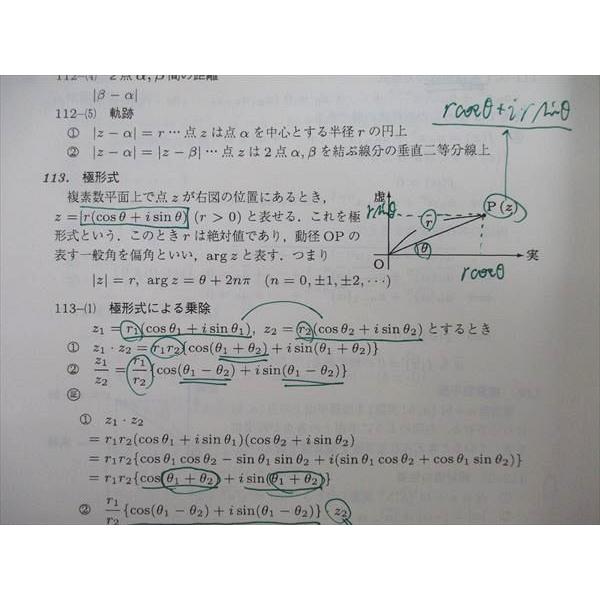 112-⑷ 2点α, β間の距離
|β − α|
112-⑸ 軌跡
① |z − α| = r … 点 z は点 α を中心とする半径 r の円上
② |z − α| = |z − β| … 点 z は 2 点 α, β を結ぶ線分の垂直二等分線上
r cosθ + i・r sinθ
113. 極形式
複素数平面上で点 z が右図の位置にあるとき,
z = r(cos θ + i sin θ) (r > 0) と表せる. これを極
形式という. このとき r は絶対値であり, 動径 OP の
表す一般角を偏角といい, arg z と表す. つまり
|z| = r, arg z = θ + 2nπ (n = 0, ±1, ±2, ⋯)
虚
r sinθ
P(z)
r
θ
O
実
r cosθ
113-⑴ 極形式による乗除
z₁ = r₁(cos θ₁ + i sin θ₁), z₂ = r₂(cos θ₂ + i sin θ₂) とするとき
① z₁・z₂ = r₁r₂{cos(θ₁ + θ₂) + i sin(θ₁ + θ₂)}
② z₁/z₂ = r₁/r₂{cos(θ₁ − θ₂) + i sin(θ₁ − θ₂)}
㊣
① z₁・z₂
= r₁r₂(cos θ₁ + i sin θ₁)(cos θ₂ + i sin θ₂)
= r₁r₂{cos θ₁ cos θ₂ − sin θ₁ sin θ₂ + i(sin θ₁ cos θ₂ + cos θ₁ sin θ₂)}
= r₁r₂{cos(θ₁ + θ₂) + i sin(θ₁ + θ₂)}
② r₁/r₂{cos(θ₁ − θ₂) + i sin(θ₁ − θ₂)} z₂